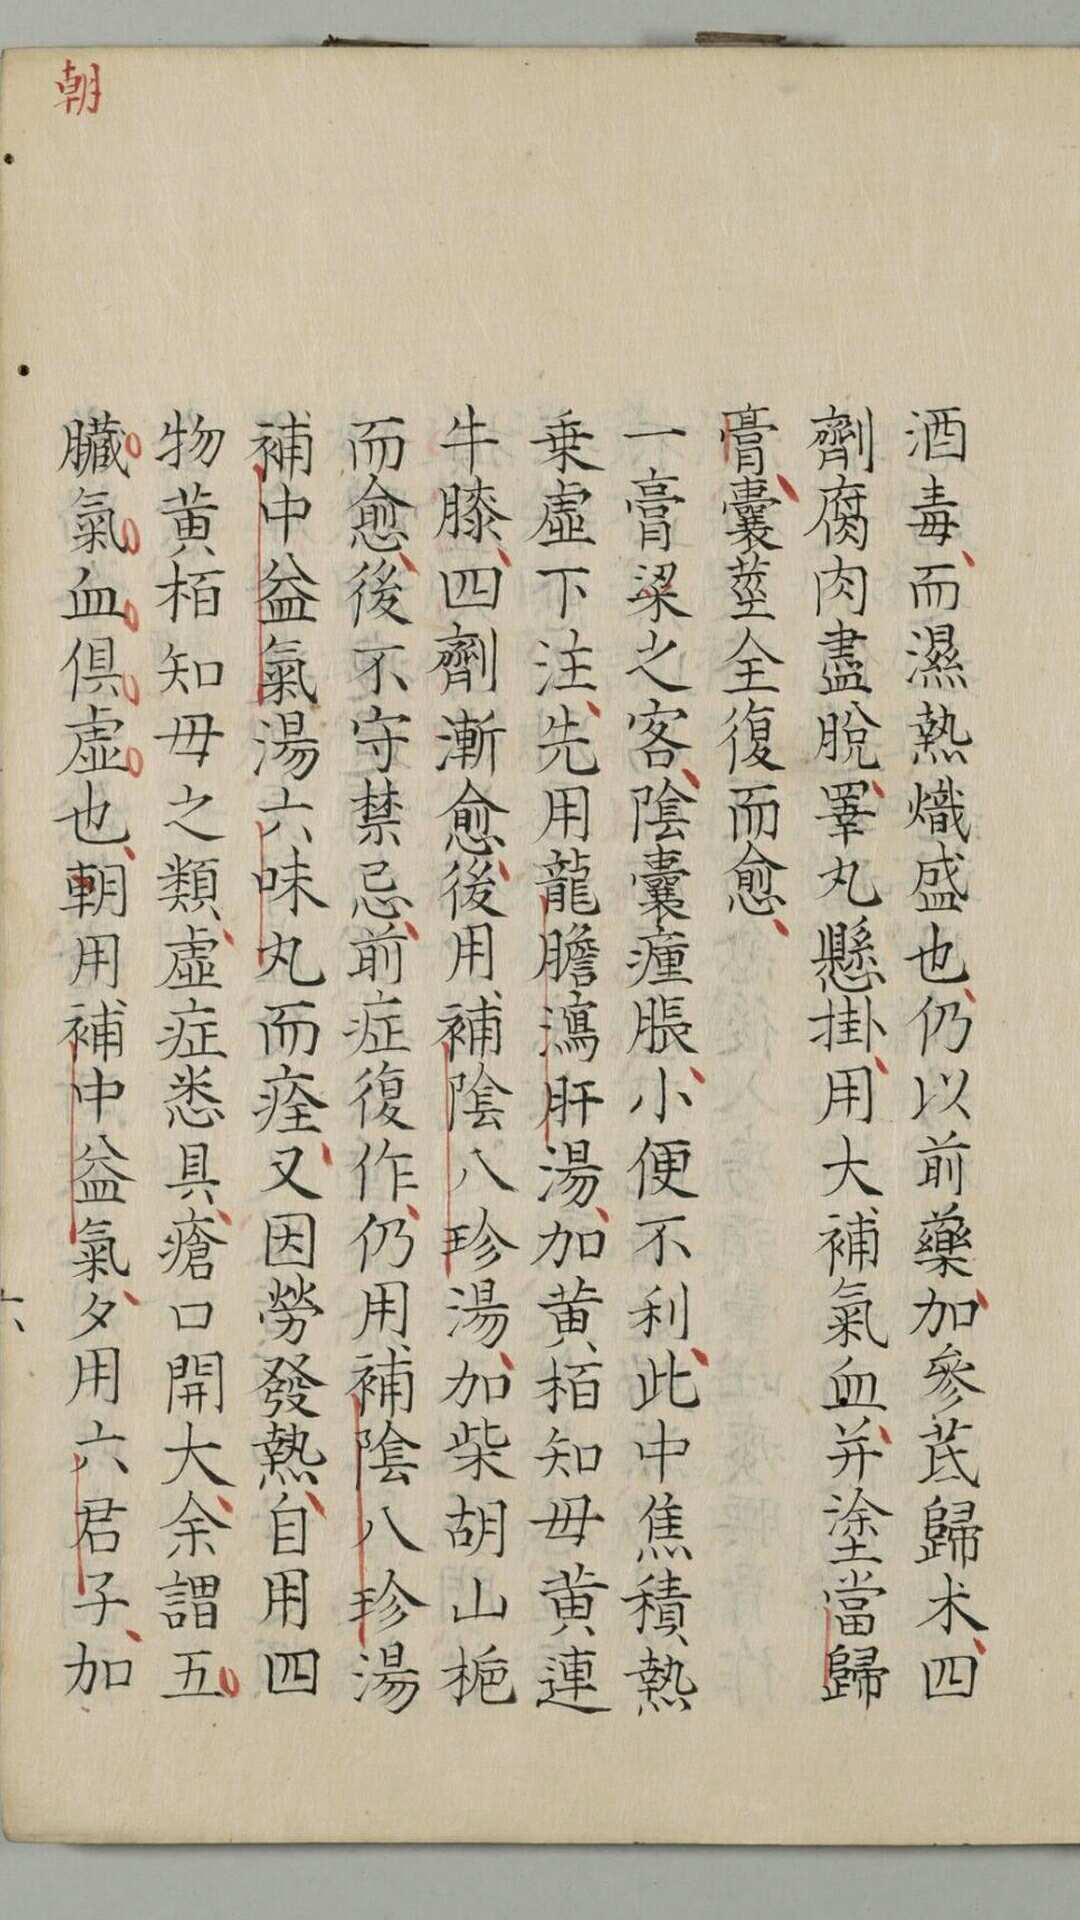 酒毒、而濕熱熾盛也、仍以前藥、加參芪歸朮、四
劑腐肉盡脫、睪丸懸掛、用大補氣血、并塗當歸
膏、囊莖全復而愈、
一膏粱之客、陰囊瘇脹、小便不利、此中焦積熱
乗虛下注、先用龍膽瀉肝湯、加黄栢知母黄連
牛膝、四劑漸愈、後用補陰八珍湯、加柴胡山梔
而愈、後不守禁忌、前症復作、仍用補陰八珍湯
補中益氣湯六味丸而痊、又因勞發熱、自用四
物黄栢知母之類、虛症悉具、瘡口開大、余謂五
臟氣血俱虛也、朝用補中益氣、夕用六君子、加
朝
六